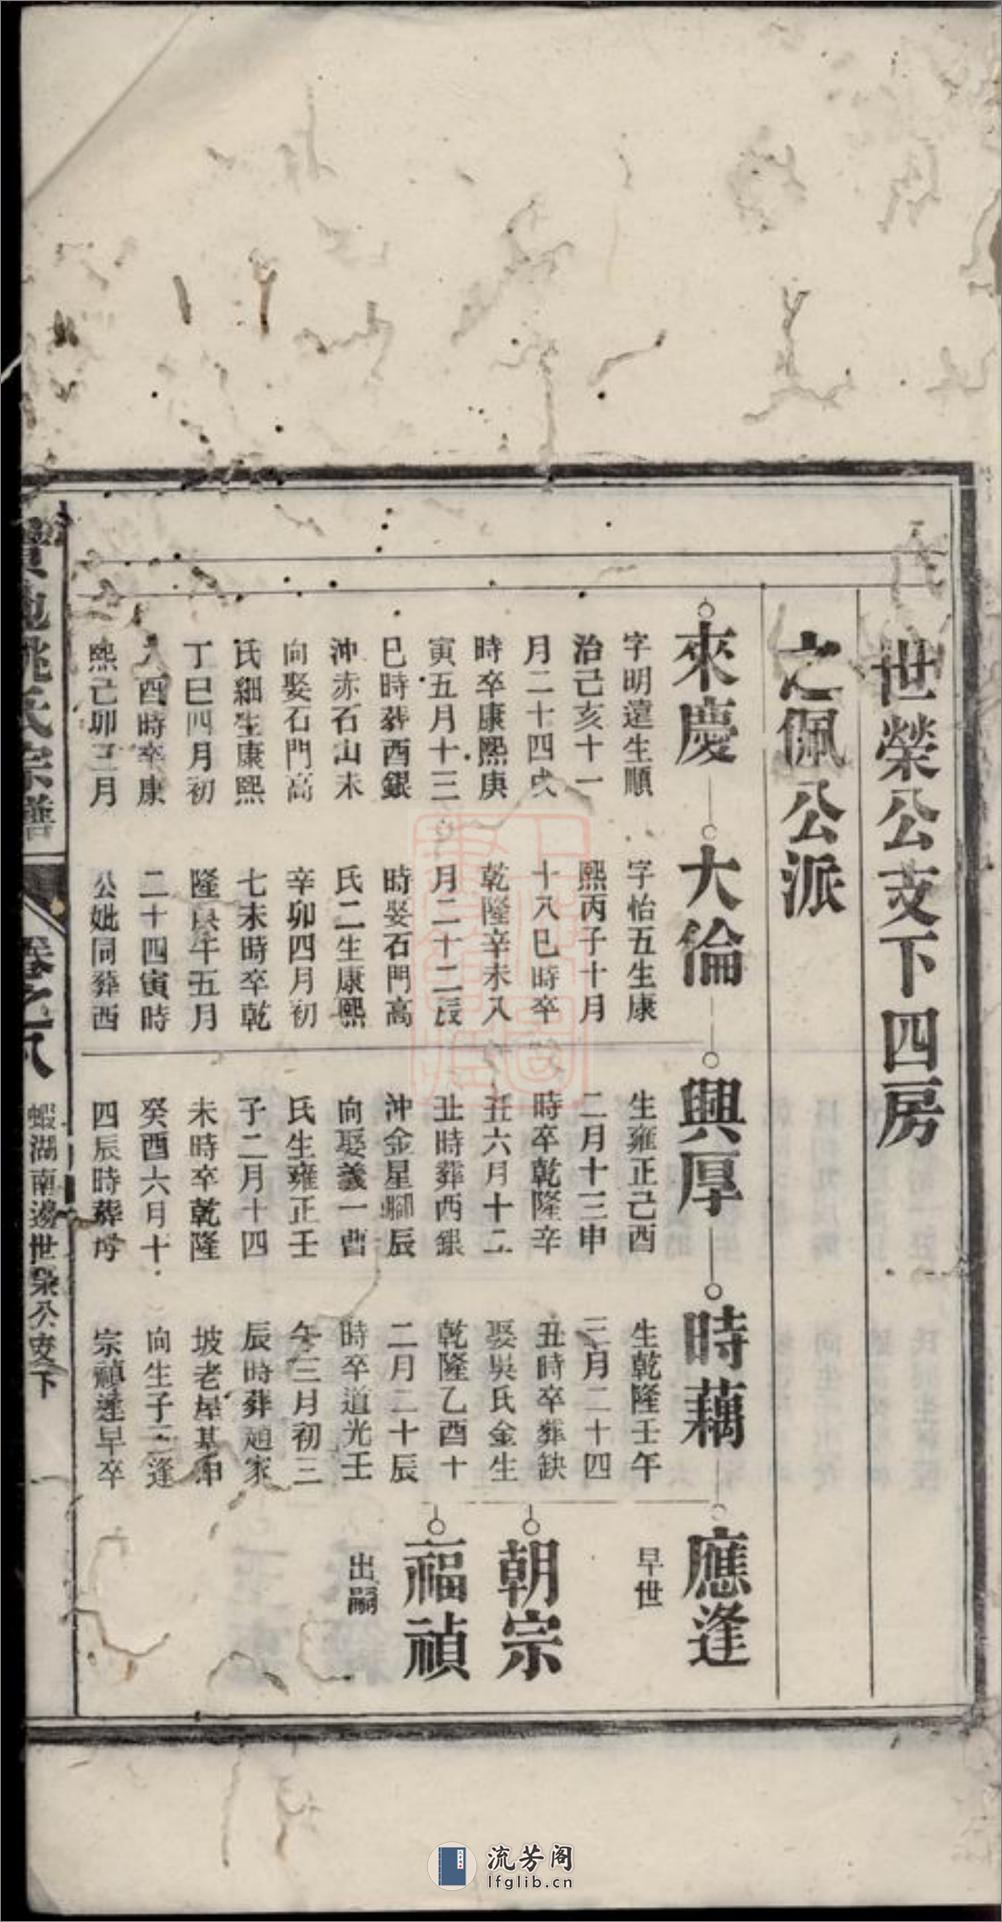 世榮公支下四房
之佩公派
來慶
字明遠生順
治己亥十一
月二十四戌
時卒康熙庚
寅五月十三
巳時葬酉銀
沖赤石山未
向娶石門高
氏細生康熙
丁巳四月初
八酉時卒康
熙己卯三月
大倫
字怡五生康
熙丙子十月
十八巳時卒
乾隆辛未八
月二十二辰
時娶石門高
氏二生康熙
辛卯四月初
七未時卒乾
隆庚午五月
二十四寅時
公妣同葬酉
興厚
生雍正己酉
二月十三申
時卒乾隆辛
丑六月十二
丑時葬西銀
沖金星腳辰
向娶義一曹
氏生雍正壬
子二月十四
未時卒乾隆
癸酉六月十
四辰時葬塆
時藕
生乾隆壬午
三月二十四
丑時卒葬缺
娶吳氏金生
乾隆乙酉十
二月二十辰
時卒道光壬
午三月初三
辰時葬趙家
坡老屋基申
向生子三逢
宗禎逢早卒
應逢
早世
朝宗
福禎
出嗣
姚氏宗譜
卷之八
蝦湖南邊世榮公支下
一
流芳阁
lfglib.cn